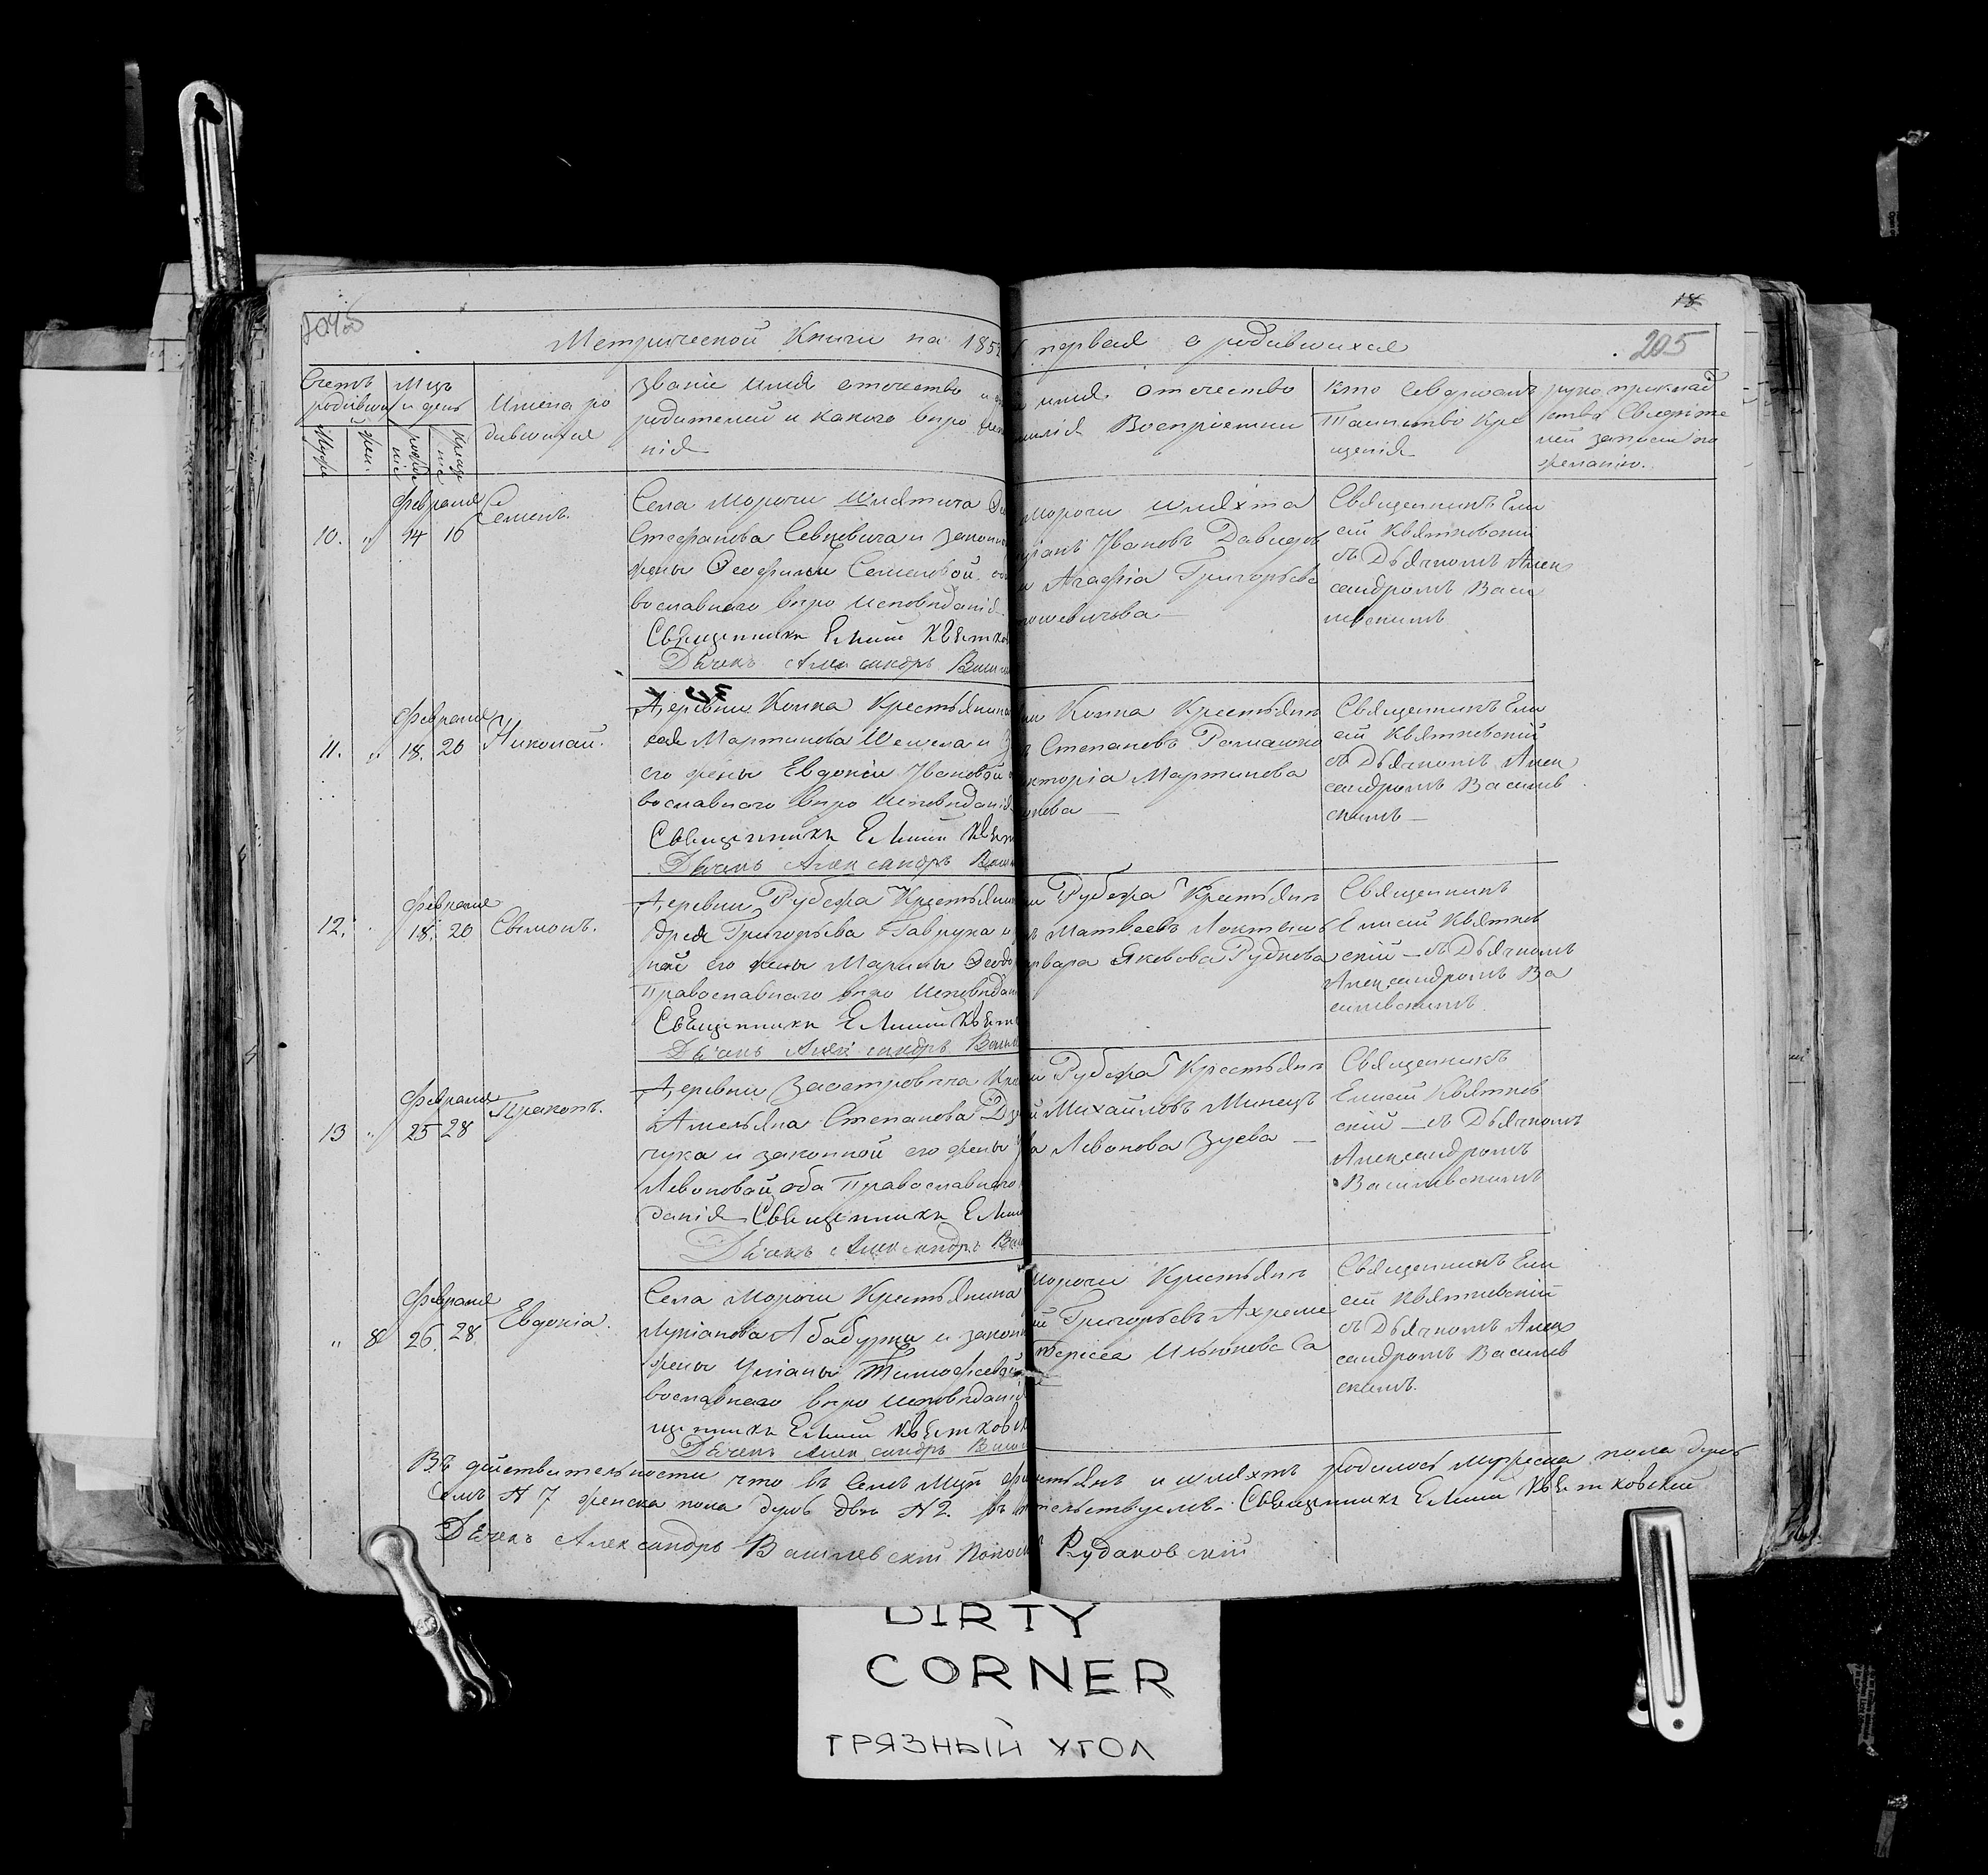 18
205
Метрической Книги на 185 первая о родившихся
Счетъ родивши
Муже
жен.
Мцъ и день
рожде ніе
креще ніе
Имена ро
дившихся
званіе имя отечество и
родителей и какого веро
нія
имя отечество
Воспріемни
кто совершалъ
Таинство Кре
щенія
руко приклад
ство Свидѣте
лей записи по
желанію.
10. „ Февраля 14 16
Семенъ.
Села Морочи шляхтича
Стефанова Севковича и законно
жены Ѳеофилы Семеновой
вославнаго веро исповѣданія
Священникъ Елисей Квятков
Дьячекъ Александръ Васил
Морочи шляхта
Ивановъ Давидов
Агафія Григорьева
Священникъ Ели
сей Квятковскій
съ Дьячкомъ Алек
сандромъ Васи
левскимъ
11. „ Февраля 18. 20
Николай.
Деревни Копка Крестьянина
Мартинова Шешела и
его жены Евдокіи Ивановой
вославнаго веро исповѣданія
Священникъ Елисей Квят
Дьячекъ Александръ Васи
Копка Крестьянъ
Степановъ Ромашко
Мартинова
Священникъ Ели
сей Квятковскій
съ Дьячкомъ Алек
сандромъ Василев
скимъ —
12. Февраля 18. 20
Симонъ.
Деревни Рубежа Крестьянин
дрея Григорьева Гаврука и
ной его жены Марины Ѳеодо
Православнаго веро исповѣдан
Священникъ Елисей Квят
Дьячекъ Александръ Васил
Рубежа Крестьянъ
Матвеевъ Локтышъ
Яковова Руднова
Священникъ
Елисей Квятков
скій — съ Дьячкомъ
Александромъ Ва
силевскимъ
13 „ Февраля 25 28
Прокопъ.
Деревни Заостровеча Кре
Амельяна Степанова
чука и законной его жены
Левоновой оба Православнаго
данія Священникъ Елис
Дьячекъ Александръ Вас
Рубежа Крестьянъ
Михайловъ Минецъ
Левонова Зуева —
Священникъ
Елисей Квятков
скій — съ Дьячкомъ
Александромъ
Василевскимъ
„ 8 Февраля 26. 28
Евдокія.
Села Морочи Крестьянина
Лукіанова Абабурки и законн
жены Уліаны Тимофеевой
вославнаго веро исповѣданія
щенникъ Елисей Квятковск
Дьячекъ Александръ Васи
Морочи Крестьянъ
Григорьевъ Ахреме
Священникъ Ели
сей Квятковскій
съ Дьячкомъ Алек
сандромъ Василев
скимъ.
Въ действительности что въ семъ Мцѣ крестьянъ и шляхтъ родилось мужеска пола душъ
семь N 7 женска пола душъ двѣ N 2. Священникъ Елисей Квятковскій
Дьячекъ Александръ Василевскій Поном Рудаковскій
DIRTY
CORNER
ГРЯЗНЫЙ УГОЛ